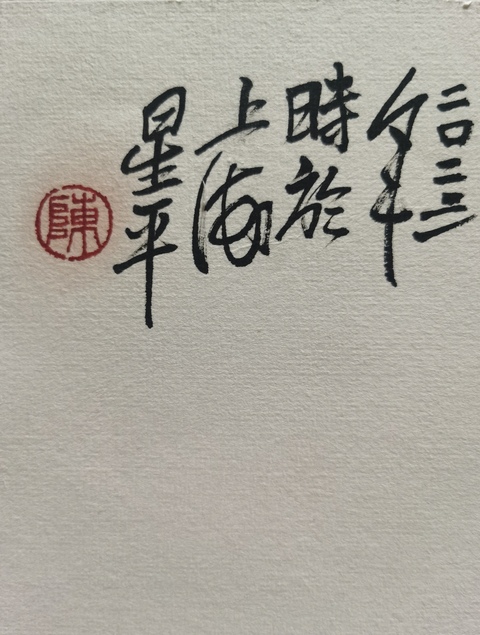 二〇二三
年
時於
上海
星平
陳